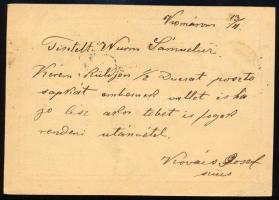 Komarom 13/11
Tisztelt Wurm Sámuel úr
Kérem küldjön 1/2 Ducat poszto
sapkát embernek vallot és ha
jo lesz akor többet is fogok
rendeni utánvétel.
Kovács Josef
szücs